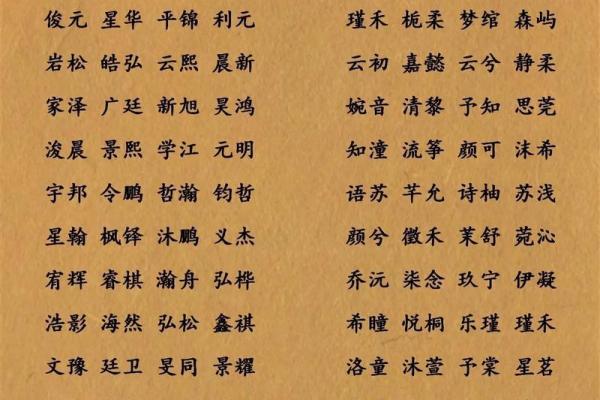 俊元 星华 平锦 利元 瑾禾 栀柔 梦绾 森屿
岩松 皓弘 云熙 晨新 云初 嘉懿 云兮 静柔
家泽 广廷 新旭 昊鸿 婉音 清黎 予知 思莞
浚晨 景熙 学江 元明 知潼 流筝 颜可 沫希
宇邦 令鹏 哲瀚 钧哲 语苏 芊允 诗柚 苏浅
星翰 枫铎 沐鹏 义杰 颜兮 徵禾 茉舒 菀沁
宥辉 睿棋 瀚舟 弘桦 乔沅 柒念 玖宁 伊凝
浩影 海然 弘松 鑫祺 希瞳 悦桐 乐瑾 瑾禾
文豫 廷卫 旻同 景耀 洛童 沐萱 予棠 星茗